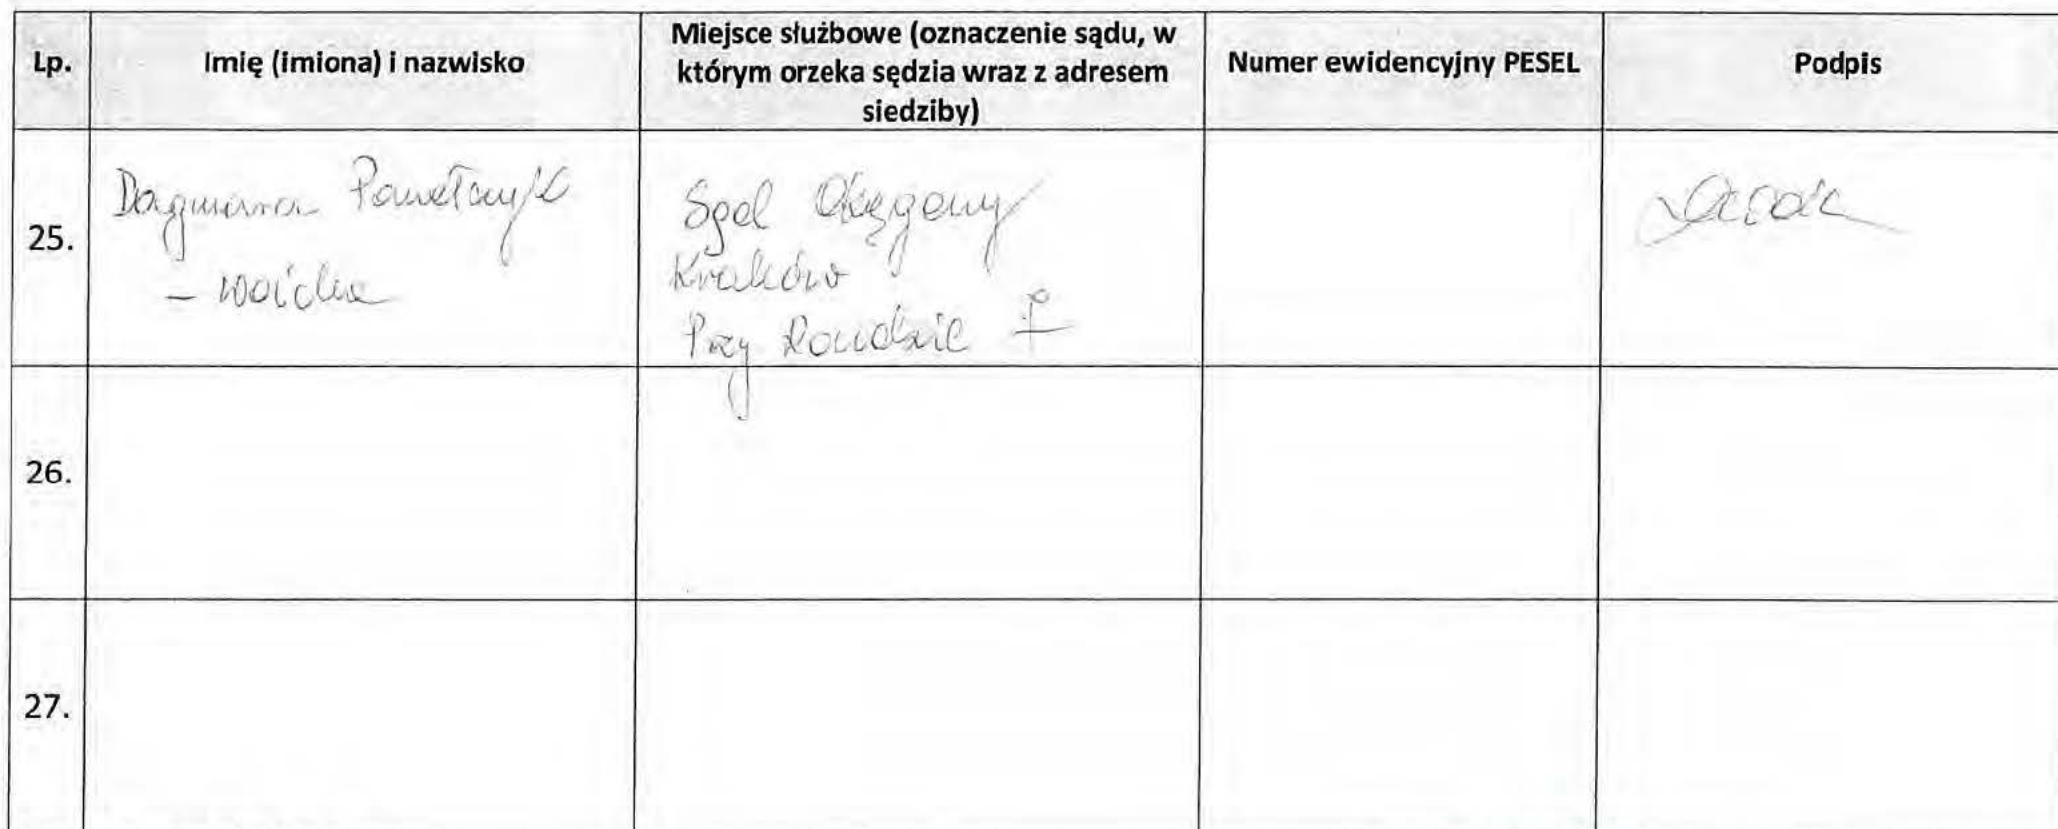 Lp.
Imię (imiona) i nazwisko
Miejsce służbowe (oznaczenie sądu, w
którym orzeka sędzia wraz z adresem
siedziby)
Numer ewidencyjny PESEL
Podpis
25.
Dagmara Pawełczyk
- Woicka
Sąd Okręgowy
Kraków
Przy Rondzie 7
26.
27.